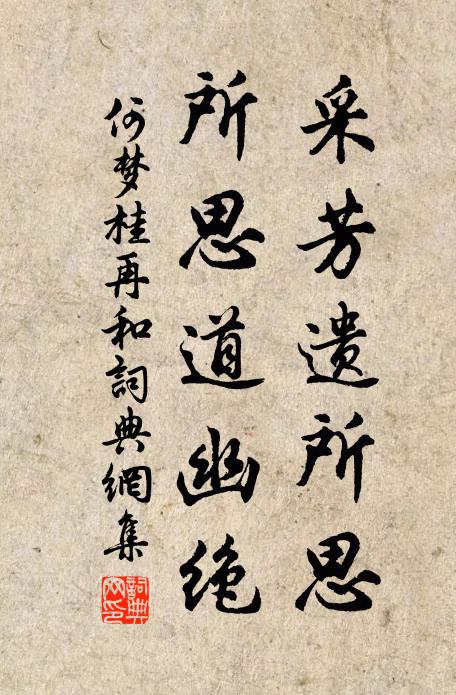 采芳遗所思
所思道幽绝
何梦桂再和詞典網集
詞典网印